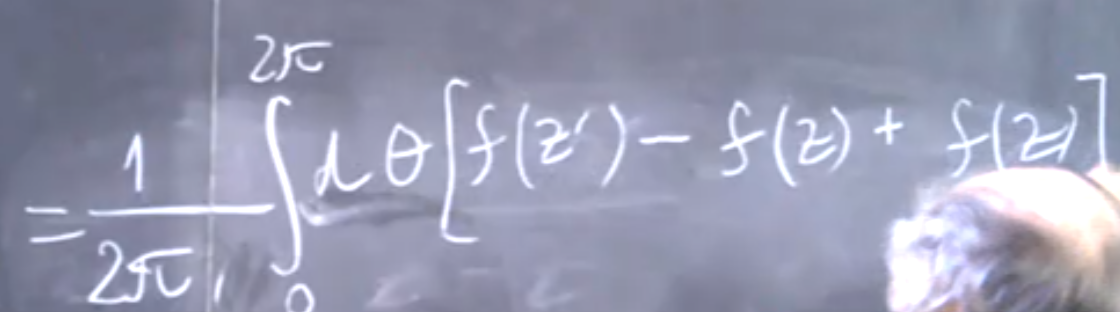 = \frac{1}{2\pi} \int_0^{2\pi} d\theta [f(z') - f(z) + f(z)]